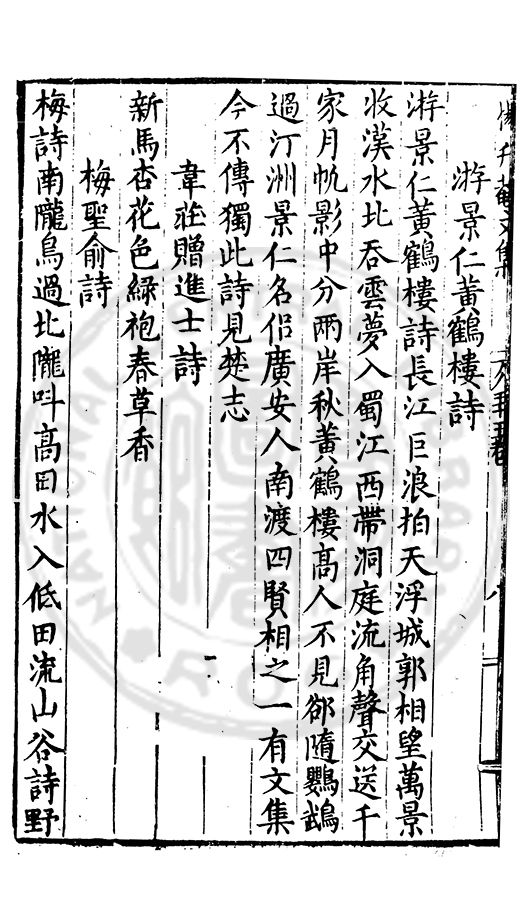 游景仁黄鶴樓詩
游景仁黄鶴樓詩長江巨浪拍天浮城郭相望萬景
收漢水北吞雲夢入蜀江西帶洞庭流角聲交送千
家月帆影中分兩岸秋黄鶴樓高人不見郤隨鸚鵡
過汀洲景仁名侣廣安人南渡四賢相之一有文集
今不傳獨此詩見楚志
韋莊贈進士詩
新馬杏花色綠袍春草香
梅聖俞詩
梅詩南隴鳥過北隴呌高田水入低田流山谷詩野